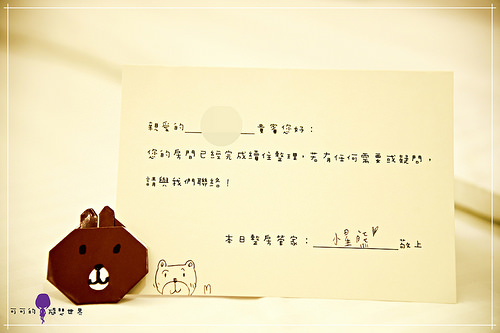 親愛的 貴賓您好：
您的房間已經完成續住整理，若有任何需要或疑問，
請與我們聯絡！
本日整房管家： 小星熊 敬上
可可的 夢想世界